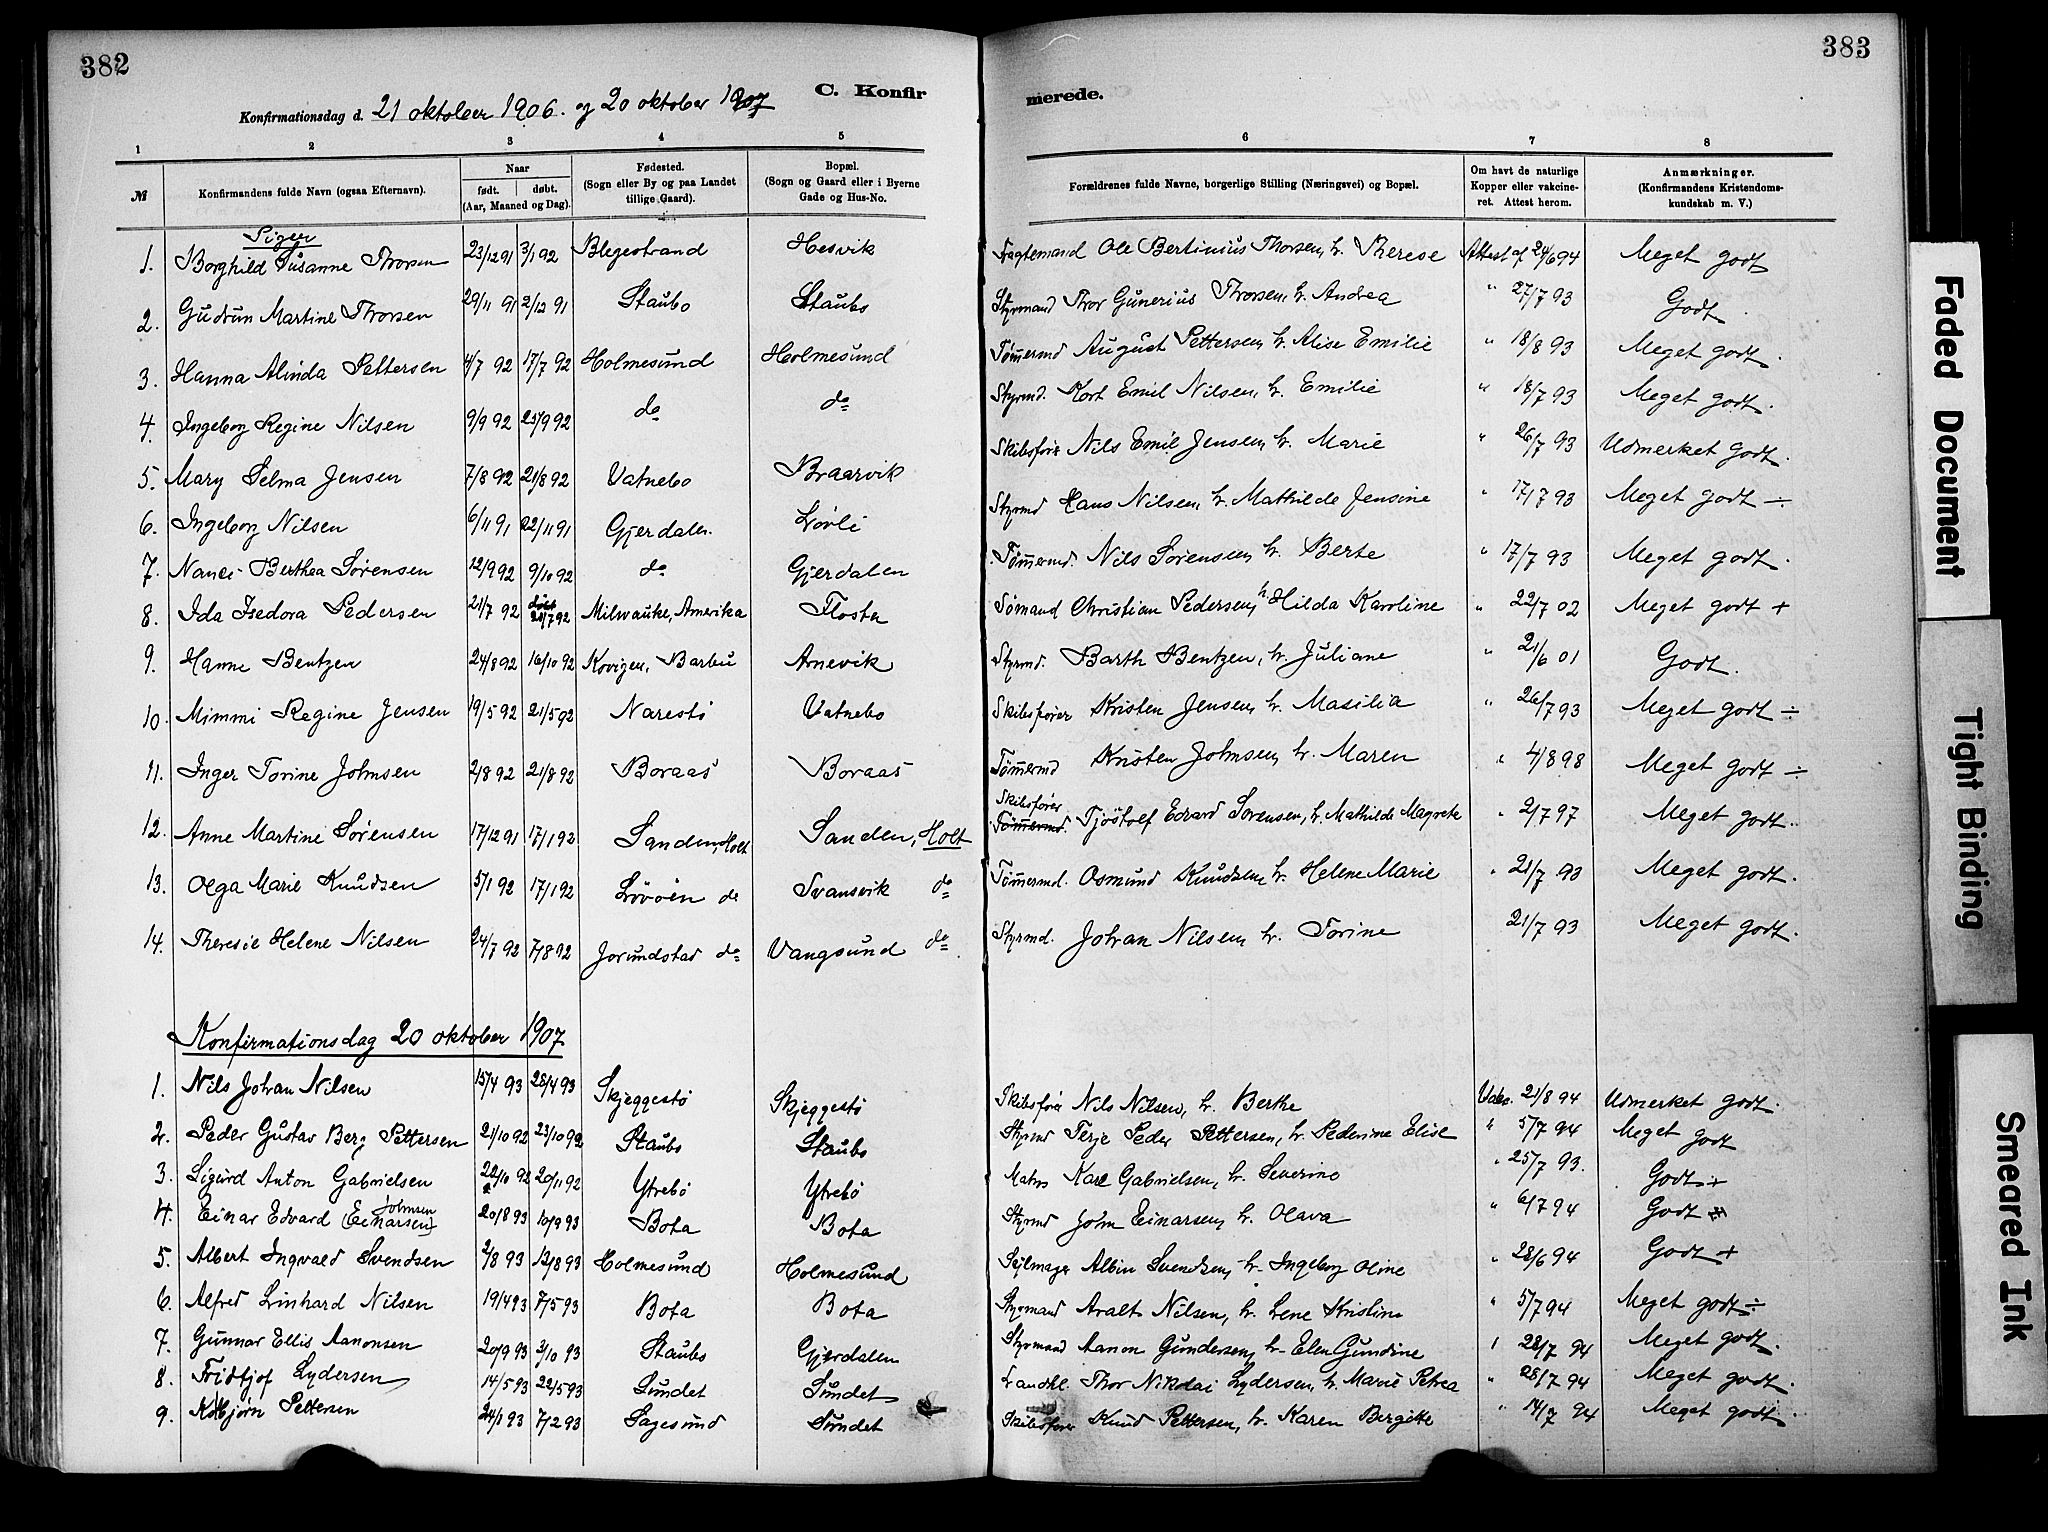 382
383
C. Konfir
merede.
Konfirmationsdag d. 21 oktober 1906. og 20 oktober 1907
1 2 3 4 5 6 7 8
№ Konfirmandens fulde Navn (ogsaa Efternavn). Naar født. døbt. (Aar, Maaned og Dag). Fødested. (Sogn eller By og paa Landet tillige Gaard). Bopæl. (Sogn og Gaard eller i Byerne Gade og Hus-No. Forældrenes fulde Navne, borgerlige Stilling (Næringsvei) og Bopæl. Om havt de naturlige Kopper eller vakcineret. Attest herom. Anmærkninger. (Konfirmandens Kristendomskundskab m. V.)
Piger
1. Borghild Susanne Thorsen 23/12 91 3/1 92 Blegestrand Hesvik Fragtemand Ole Bertinius Thorsen, h. Therese Attest af 24/6 94 Meget godt
2. Gudrun Martine Thorsen 29/11 91 2/12 91 Staubo Staubo Styrmand Thor Gunerius Thorsen, h. Andrea " 27/7 93 Godt
3. Hanna Alinda Pettersen 4/7 92 17/7 92 Holmesund Holmesund Tømermd August Pettersen, h. Alise Emilie " 18/8 93 Meget godt.
4. Ingeborg Regine Nilsen 9/9 92 25/9 92 do do Styrmd. Kort Emil Nilsen, h. Emilie " 18/7 93 Meget godt.
5. Mary Selma Jensen 7/8 92 21/8 92 Vatnebo Braarvik Skibsfører Nils Emil Jensen, h. Marie " 26/7 93 Udmerket godt.
6. Ingeborg Nilsen 6/11 91 22/11 91 Gjerdalen. Løvli Styrmd Hans Nilsen, h. Mathilde Jensine " 17/7 93 Meget godt ÷
7. Nanci Berthea Sørensen 12/9 92 9/10 92 do Gjerdalen Tømermd. Nils Sørensen, h. Berte " 17/7 93 Meget godt.
8. Ida Isedora Pedersen 21/7 92 døbt 21/7 92 Milwauke, Amerika Flosta Sømand Christian Pedersen, h. Hilda Karoline " 22/7 02 Meget godt +
9. Hanne Bentzen 24/8 92 16/10 92 Kovigen, Barbu Arnevik Styrmd. Barth Bentzen, h. Juliane " 21/6 01 Godt.
10. Mimmi Regine Jensen 19/5 92 21/5 92 Narestø Vatnebo Skibsfører Kristen Jensen, h. Masilia " 26/7 93 Meget godt ÷
11. Inger Torine Johnsen 2/8 92 21/8 92 Boraas Boraas Tømermd Kristen Johnsen, h. Maren " 4/8 98 Meget godt ÷
12. Anne Martine Sørensen 17/12 91 17/1 92 Sanden, Holt Sanden, Holt Skibsfører Tømermd. Tjøstolf Edvard Sørensen, h. Mathilde Magrete " 2/7 97 Meget godt.
13. Olga Marie Knudsen 5/1 92 17/1 92 Løvøen do Svansvik do Tømermd. Osmund Knudsen, h. Helene Marie " 21/7 93 Meget godt.
14. Theresie Helene Nilsen 24/7 92 7/8 92 Jorundstad do Vangsund do Styrmd. Johan Nilsen, h. Torine 21/7 93 Meget godt.
Konfirmationsdag 20 oktober 1907
1. Nils Johan Nilsen 15/4 93 28/4 93 Skjeggestø Skjeggestø Skibsfører Nils Nilsen, h. Berthe 21/8 94 Udmerket godt.
2. Peder Gustav Berg Pettersen 21/10 92 23/10 92 Staubo Staubo Styrmd Terje Peder Pettersen, h. Pederine Elise " 5/7 94 Meget godt
3. Sigurd Anton Gabrielsen 22/10 92 20/11 92 Ytrebø Ytrebø Matros Karl Gabrielsen, h. Severine " 25/7 93. Godt +
4. Einar Edvard (Einarsen) Johnsen 20/8 93 10/9 93 Bota Bota Styrmd John Einarsen, h. Olava " 6/7 94 Godt +
5. Albert Ingvald Svendsen 2/8 93 13/8 93 Holmesund Holmesund Sejlmager Albin Svendsen, h. Ingeborg Oline " 28/6 94 Godt +
6. Alfred Linhard Nilsen 19/4 93 7/5 93 Bota Bota Styrmand Aralt Nilsen, h. Lene Kristine " 5/7 94 Meget godt ÷
7. Gunnar Ellis Aanonsen 20/9 93 3/10 93 Staubo Gjerdalen Styrmand Aanon Gundersen, h. Elen Gundine " 28/7 94 Meget godt.
8. Fridtjof Lydersen 14/5 93 22/5 93 Sundet Sundet Landhl. Thor Nikolai Lydersen, h. Marie Petrea " 28/7 94 Meget godt.
9. Kolbjørn Pettersen 24/1 93 7/2 93 Sagesund Sundet Skibsfører Knud Pettersen, h. Karen Bergitte " 14/7 94 Meget godt.
Faded Document
Tight Binding
Smeared Ink